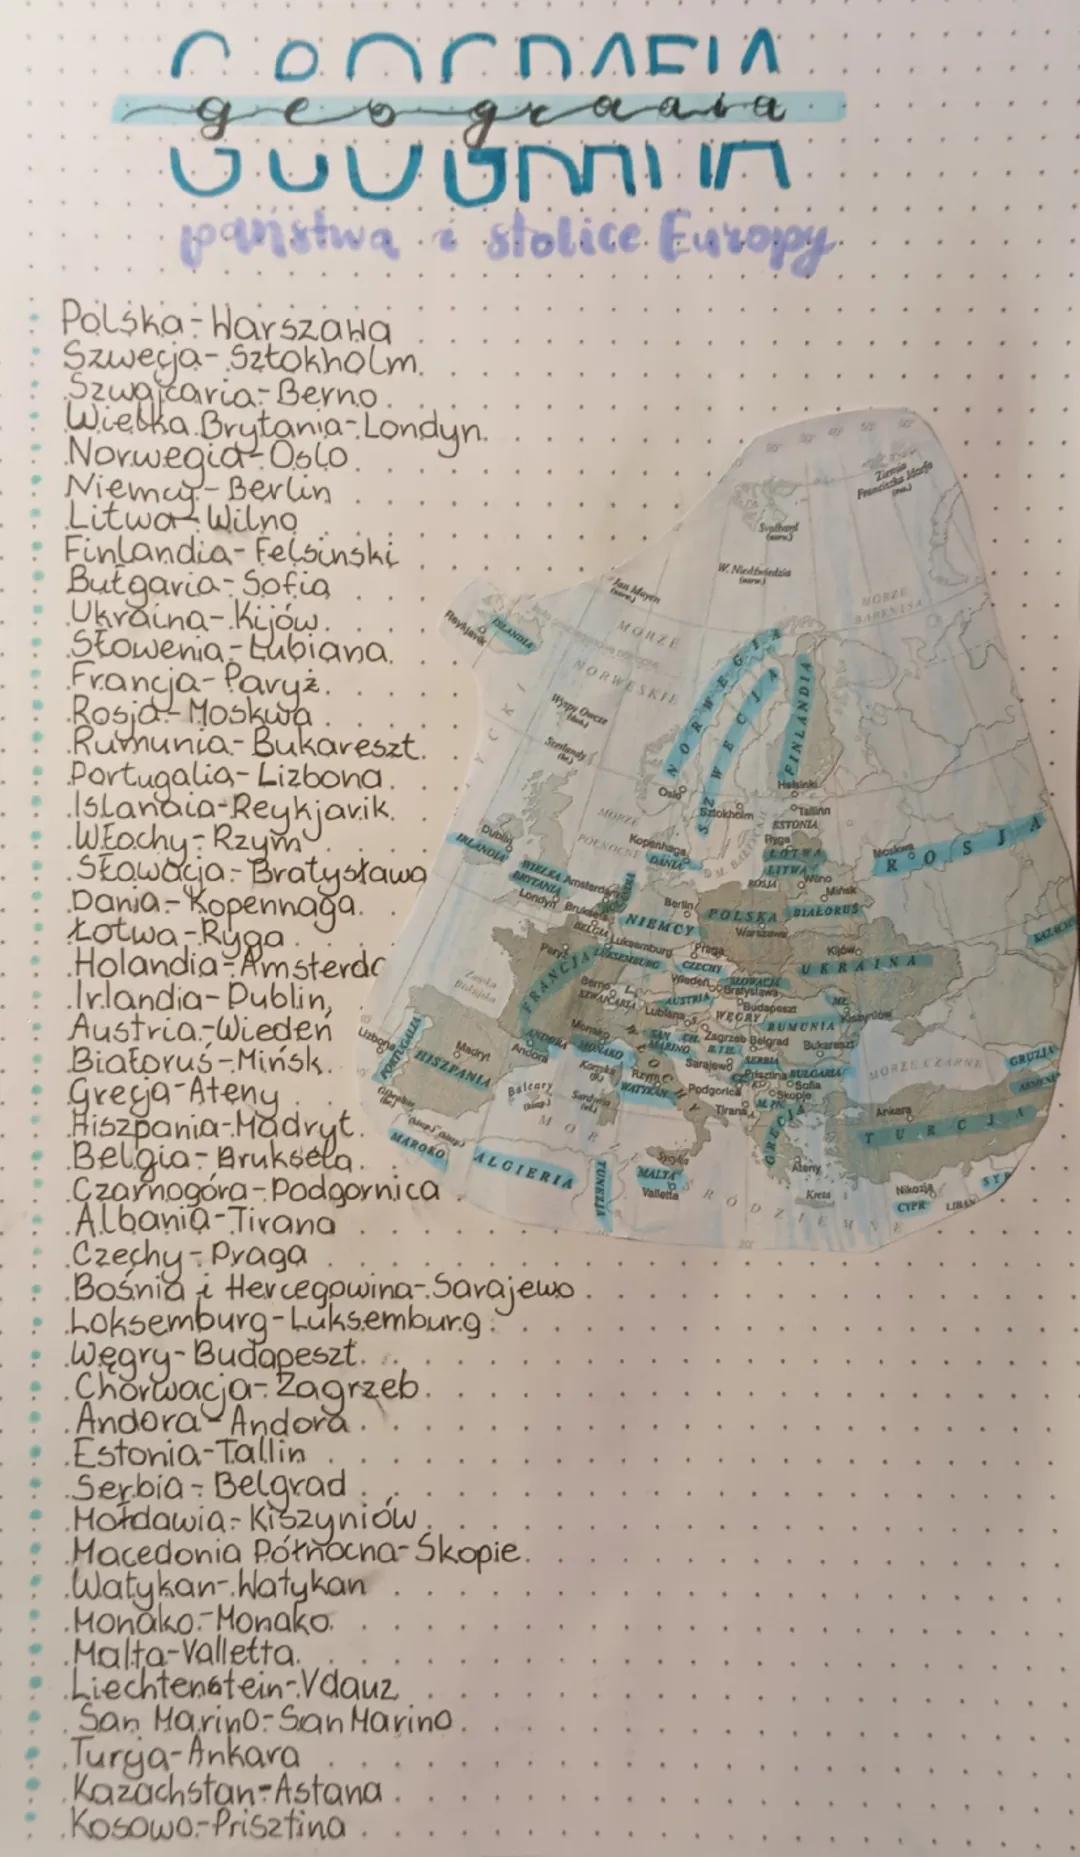 GEOGRAFIA
geografia
państwa i stolice Europy
Polska-Warszawa
Szwecja-Sztokholm.
Szwajcaria-Berno.
Wielka Brytania-Londyn.
Norwegia-Oslo.
Niemcy-Berlin
Litwa-Wilno
Finlandia-Felsinski
Bułgaria-Sofia
Ukraina-Kijów.
Słowenia-Łubiana.
Francja-Paryż.
Rosja-Moskwa
Rumunia-Bukareszt.
Portugalia-Lizbona.
Islandia-Reykjavik.
Włochy-Rzym
Słowacja-Bratysława
Dania-Kopennaga.
Łotwa-Ryga
Holandia-Amsterda
Irlandia-Dublin,
Austria-Wiedeń
Białoruś-Mińsk.
Grecja-Ateny
Hiszpania-Madryt.
Belgia-Bruksela.
Czarnogóra-Podgornica
Albania-Tirana
Czechy-Praga
Bośnia i Hercegowina-Sarajewo
Loksemburg-Luksemburg
Węgry-Budapeszt.
Chorwacja-Zagrzeb.
Andora-Andora
Estonia-Tallin
Serbia-Belgrad
Mołdawia-Kiszyniów
Macedonia Północna-Skopie.
Watykan-Watykan
Monako-Monako.
Malta-Valletta.
Liechtenstein-Vdauz
San Marino-San Marino.
Turcja-Ankara
Kazachstan-Astana
Kosowo-Prisztina
Ziemia
Franciszka Józefa
(ros.)
Svalbard
(norw.)
W. Niedźwiedzia
(norw.)
Jan Mayen
(norw.)
MORZE
BARENTSA
Reykjavik
ISLANDIA
MORZE
NORWESKIE
NORWEGIA
SZWECJA
FINLANDIA
Wyspy Owcze
(duń.)
Szetlandy
(br.)
Oslo
Helsinki
Sztokholm
Tallinn
ESTONIA
MORZE
PÓŁNOCNE
Dublin
IRLANDIA
Kopenhaga
DANIA
Ryga
ŁOTWA
LITWA
Wilno
ROSJA
Moskwa
ROSJA
WIELKA
BRYTANIA
Amsterda
Londyn
Bruksela
BELGIA
Berlin
NIEMCY
POLSKA
Warszawa
Mińsk
BIAŁORUŚ
KAZACHS
Luksemburg
LUKSEMBURG
Paryż
FRANCJA
Praga
CZECHY
Kijów
UKRAINA
Zatoka
Biskajska
Berno
SZWAJCARIA
Wiedeń
AUSTRIA
SŁOWACJA
Bratysława
Budapeszt
WĘGRY
Lublana
Kiszyniów
RUMUNIA
Bukareszt
Zagrzeb
Belgrad
SERBIA
Monako
MONAKO
SAN
MARINO
Sarajewo
Prisztina
BUŁGARIA
Sofia
Skopie
MORZE CZARNE
GRUZJA
ARMENIA
Andora
ANDORA
Lizbona
PORTUGALIA
Madryt
HISZPANIA
Korsyka
Rzym
WATYKAN
WŁOCHY
Podgorica
Tirana
Baleary
(hiszp.)
Sardynia
(wł.)
Gibraltar
(br.)
GRECJA
Ankara
TURCJA
MAROKO
ALGIERIA
TUNEZJA
Sycylia
MALTA
Valletta
Ateny
Kreta
Nikozja
CYPR
LIBAN
SYR
MORZE ŚRÓDZIEMNE